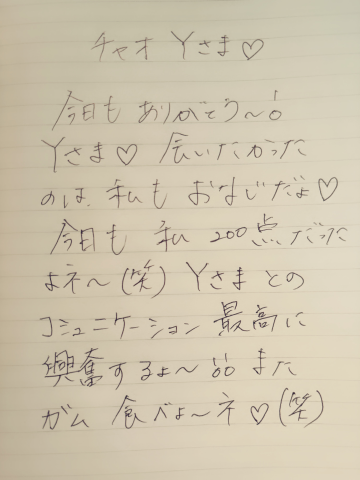 チャオ Yさま♡
今日も ありがとう〜!
Yさま♡ 会いたかった
のは、私も おなじだよ♡
今日も 私 200点だった
よネ〜(笑) Yさま との
コミュニケーション 最高に
興奮するょ〜 また
ガム 食べょ〜ネ♡(笑)